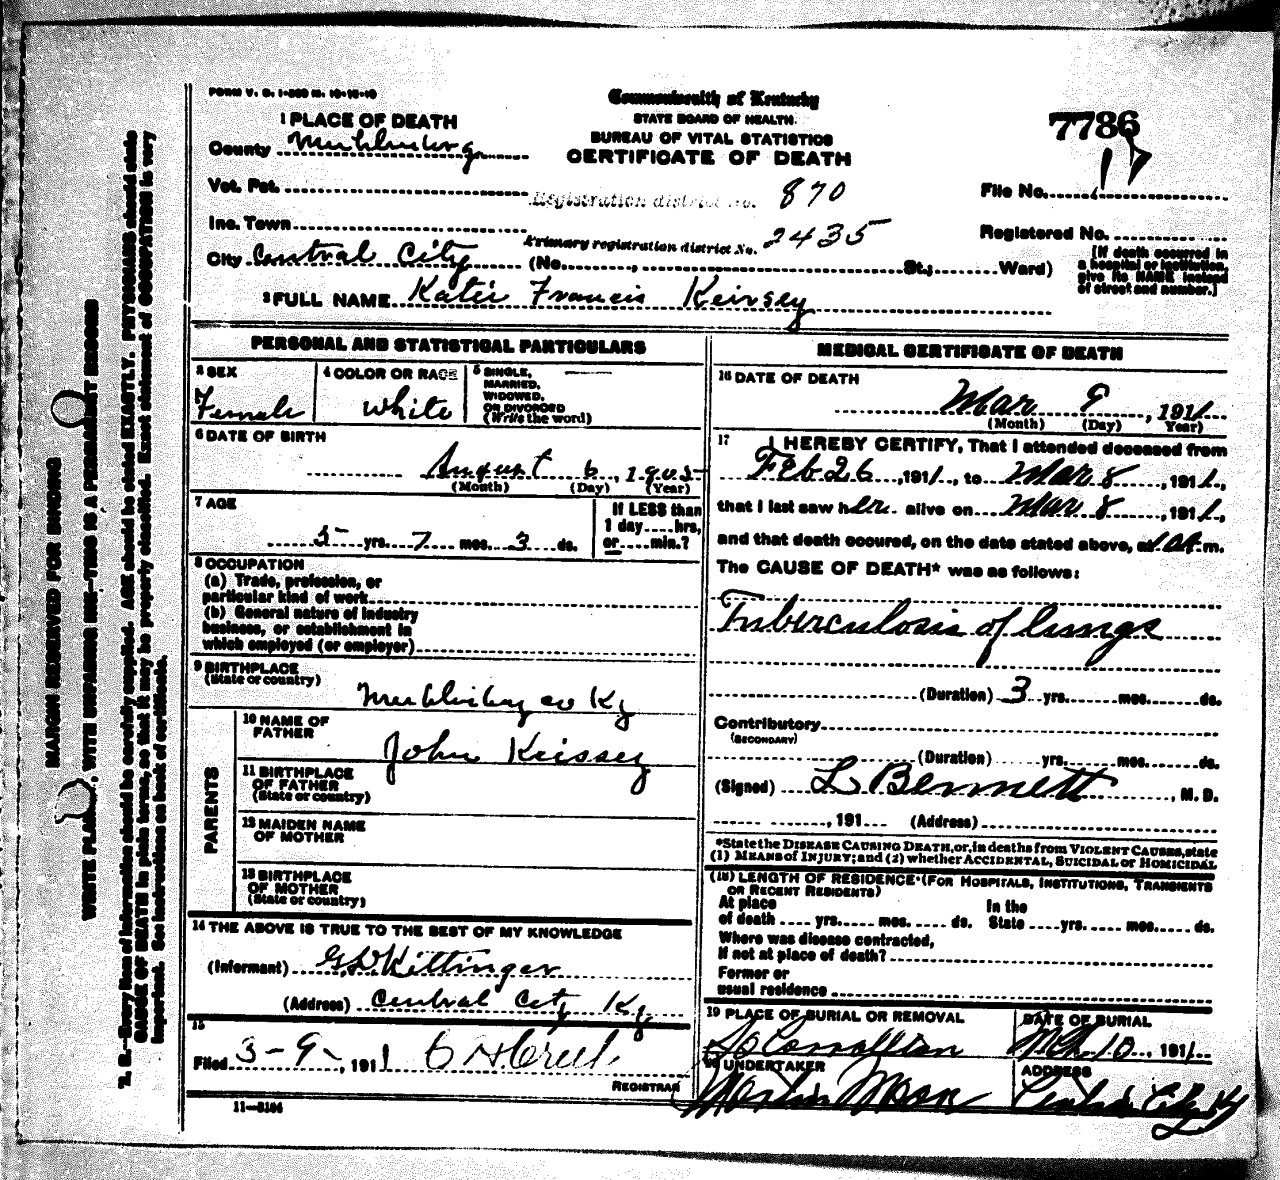 FORM V. S. 1-
Commonwealth of Kentucky
STATE BOARD OF HEALTH.
BUREAU OF VITAL STATISTICS
CERTIFICATE OF DEATH
7786
1 PLACE OF DEATH
County Muhlenberg
Vot. Pct.
Registration district No. 870
File No. 17
Inc. Town
Primary registration district No. 2435
Registered No.
City Central City (No. , St.; Ward)
[If death occurred in a hospital or institution, give its NAME instead of street and number.]
2 FULL NAME Katie Francis Keirsey
PERSONAL AND STATISTICAL PARTICULARS
3 SEX
Female
4 COLOR OR RACE
White
5 SINGLE, MARRIED, WIDOWED, OR DIVORCED (Write the word)
6 DATE OF BIRTH
August 6, 1905
(Month) (Day) (Year)
7 AGE
5 yrs. 7 mos. 3 ds.
If LESS than 1 day hrs, or min.?
8 OCCUPATION
(a) Trade, profession, or
particular kind of work
(b) General nature of industry
business, or establishment in
which employed (or employer)
9 BIRTHPLACE
(State or country)
Muhlenberg co Ky
PARENTS
10 NAME OF FATHER
John Krissey
11 BIRTHPLACE OF FATHER
(State or country)
12 MAIDEN NAME OF MOTHER
13 BIRTHPLACE OF MOTHER
(State or country)
14 THE ABOVE IS TRUE TO THE BEST OF MY KNOWLEDGE
(Informant) Kittinger
(Address) Central City Ky
15
Filed 3-9-, 1911
REGISTRAR
11—3184
MEDICAL CERTIFICATE OF DEATH
16 DATE OF DEATH
Mar 9, 1911
(Month) (Day) Year)
17 I HEREBY CERTIFY, That I attended deceased from
Feb 26, 1911, to Mar 8, 1911,
that I last saw her alive on Mar 8, 1911,
and that death occured, on the date stated above, at 1 am.
The CAUSE OF DEATH* was as follows:
Tuberculosis of lungs
(Duration) 3 yrs. mos. ds.
Contributory
(SECONDARY)
(Duration) yrs. mos. ds.
(Signed) L Bennett, M. D.
, 191 (Address)
*State the DISEASE CAUSING DEATH, or, in deaths from VIOLENT CAUSES, state
(1) MEANS OF INJURY; and (2) whether ACCIDENTAL, SUICIDAL or HOMICIDAL
(18) LENGTH OF RESIDENCE (FOR HOSPITALS, INSTITUTIONS, TRANSIENTS
OR RECENT RESIDENTS)
At place of death yrs. mos. ds.
In the State yrs. mos. ds.
Where was disease contracted,
If not at place of death?
Former or
usual residence
19 PLACE OF BURIAL OR REMOVAL
DATE OF BURIAL
Mch. 10, 1911
20 UNDERTAKER
Martin Moore
ADDRESS
Central City Ky
MARGIN RESERVED FOR BINDING
WRITE PLAINLY, WITH UNFADING INK—THIS IS A PERMANENT RECORD
N. B.—Every item of information should be carefully supplied. AGE should be stated EXACTLY. PHYSICIANS should state
CAUSE OF DEATH in plain terms, so that it may be properly classified. Exact statement of OCCUPATION is very
important. See instructions on back of certificate.